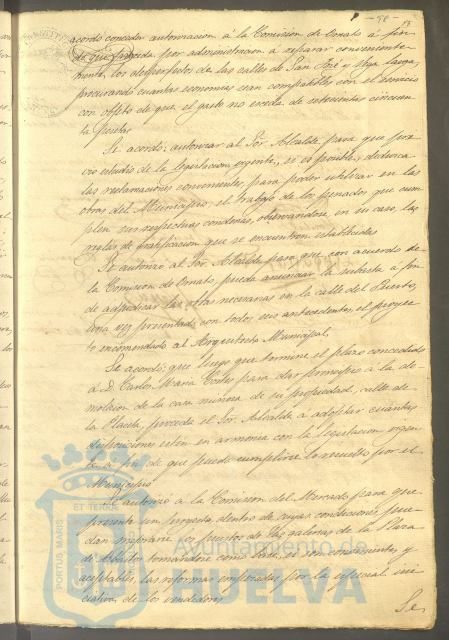 acordó conceder autorización á la Comisión de Ornato á fin
de que proceda por administración a reparar conveniente-
mente, los desperfectos de las calles de San José y Vega Larga,
procurando cuantas economías sean compatibles con el servicio
con objeto de que el gasto no esceda de setecientas cincuen
ta pesetas
Se acordó: autorizar al Sor. Alcalde para que pre
vio estudio de la legislación vigente, si es posible, deduzca
las reclamaciones convenientes, para poder utilizar en las
obras del Municipio, el trabajo de los penados que cum
plen sus respectivas condenas, observándose, en su caso, las
reglas de gratificación que se encuentran establecidas
Se autorizó al Sor. Alcalde para que con acuerdo de
la Comisión de Ornato, pueda anunciar la subasta a fin
de adjudicar las obras necesarias en la calle del Puerto,
una vez presentado con todos sus antecedentes el proyec
to encomendado al Arquitecto Municipal.
Se acordó: que luego que termine el plazo concedido
a D. Carlos Maria Cortes para dar principio a la de-
molición de la casa ruinosa de su propiedad, calle de
la Placeta, proceda el Sor. Alcalde á adoptar cuantas
disposiciones estén en armonía con la legislación vigen
te a fin de que pueda cumplirse lo resuelto por el
Municipio
Se autorizó a la Comisión del Mercado para que
presente un proyecto dentro de cuyas condiciones pue
dan mejorarse los puestos de las galeras de la Plaza
de Abastos tomándose como base, si son convenientes y
aceptables, las reformas empleadas por la especial ini
ciativa de los vendedores
Se
PORTUS MARIS
ET TERRE
Ayuntamiento de
HUELVA